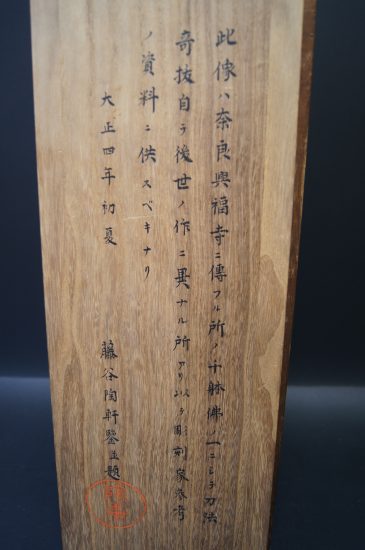 此像ハ奈良興福寺ニ傳フル所ノ千躰佛ノ一ニシテ刀法
奇抜自ラ後世ノ作ニ異ナル所アリ以テ彫刻家参考
ノ資料ニ供スベキナリ
大正四年初夏
藤谷陶軒鑒並題